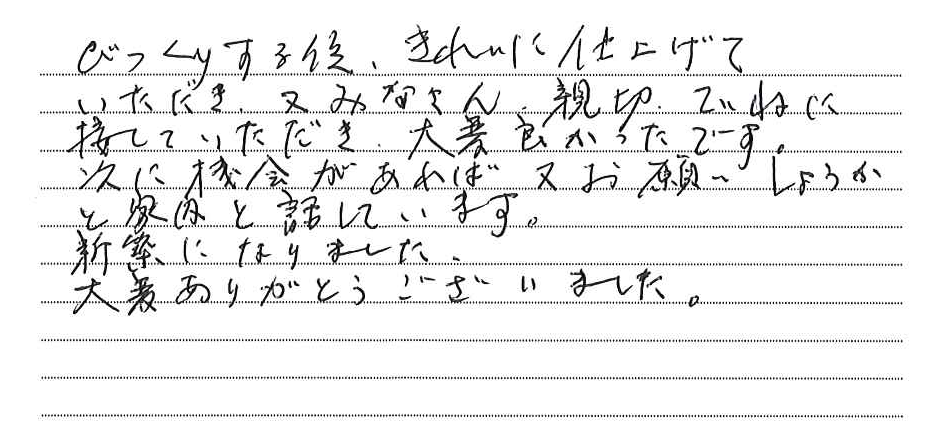 びっくりする様、きれいに仕上げて
いただき、又みなさん、親切、ていねいに
接していただき、大変良かったです。
次に機会があれば又お願いしようか
と家内と話しています。
新築になりました。
大変ありがとうございました。